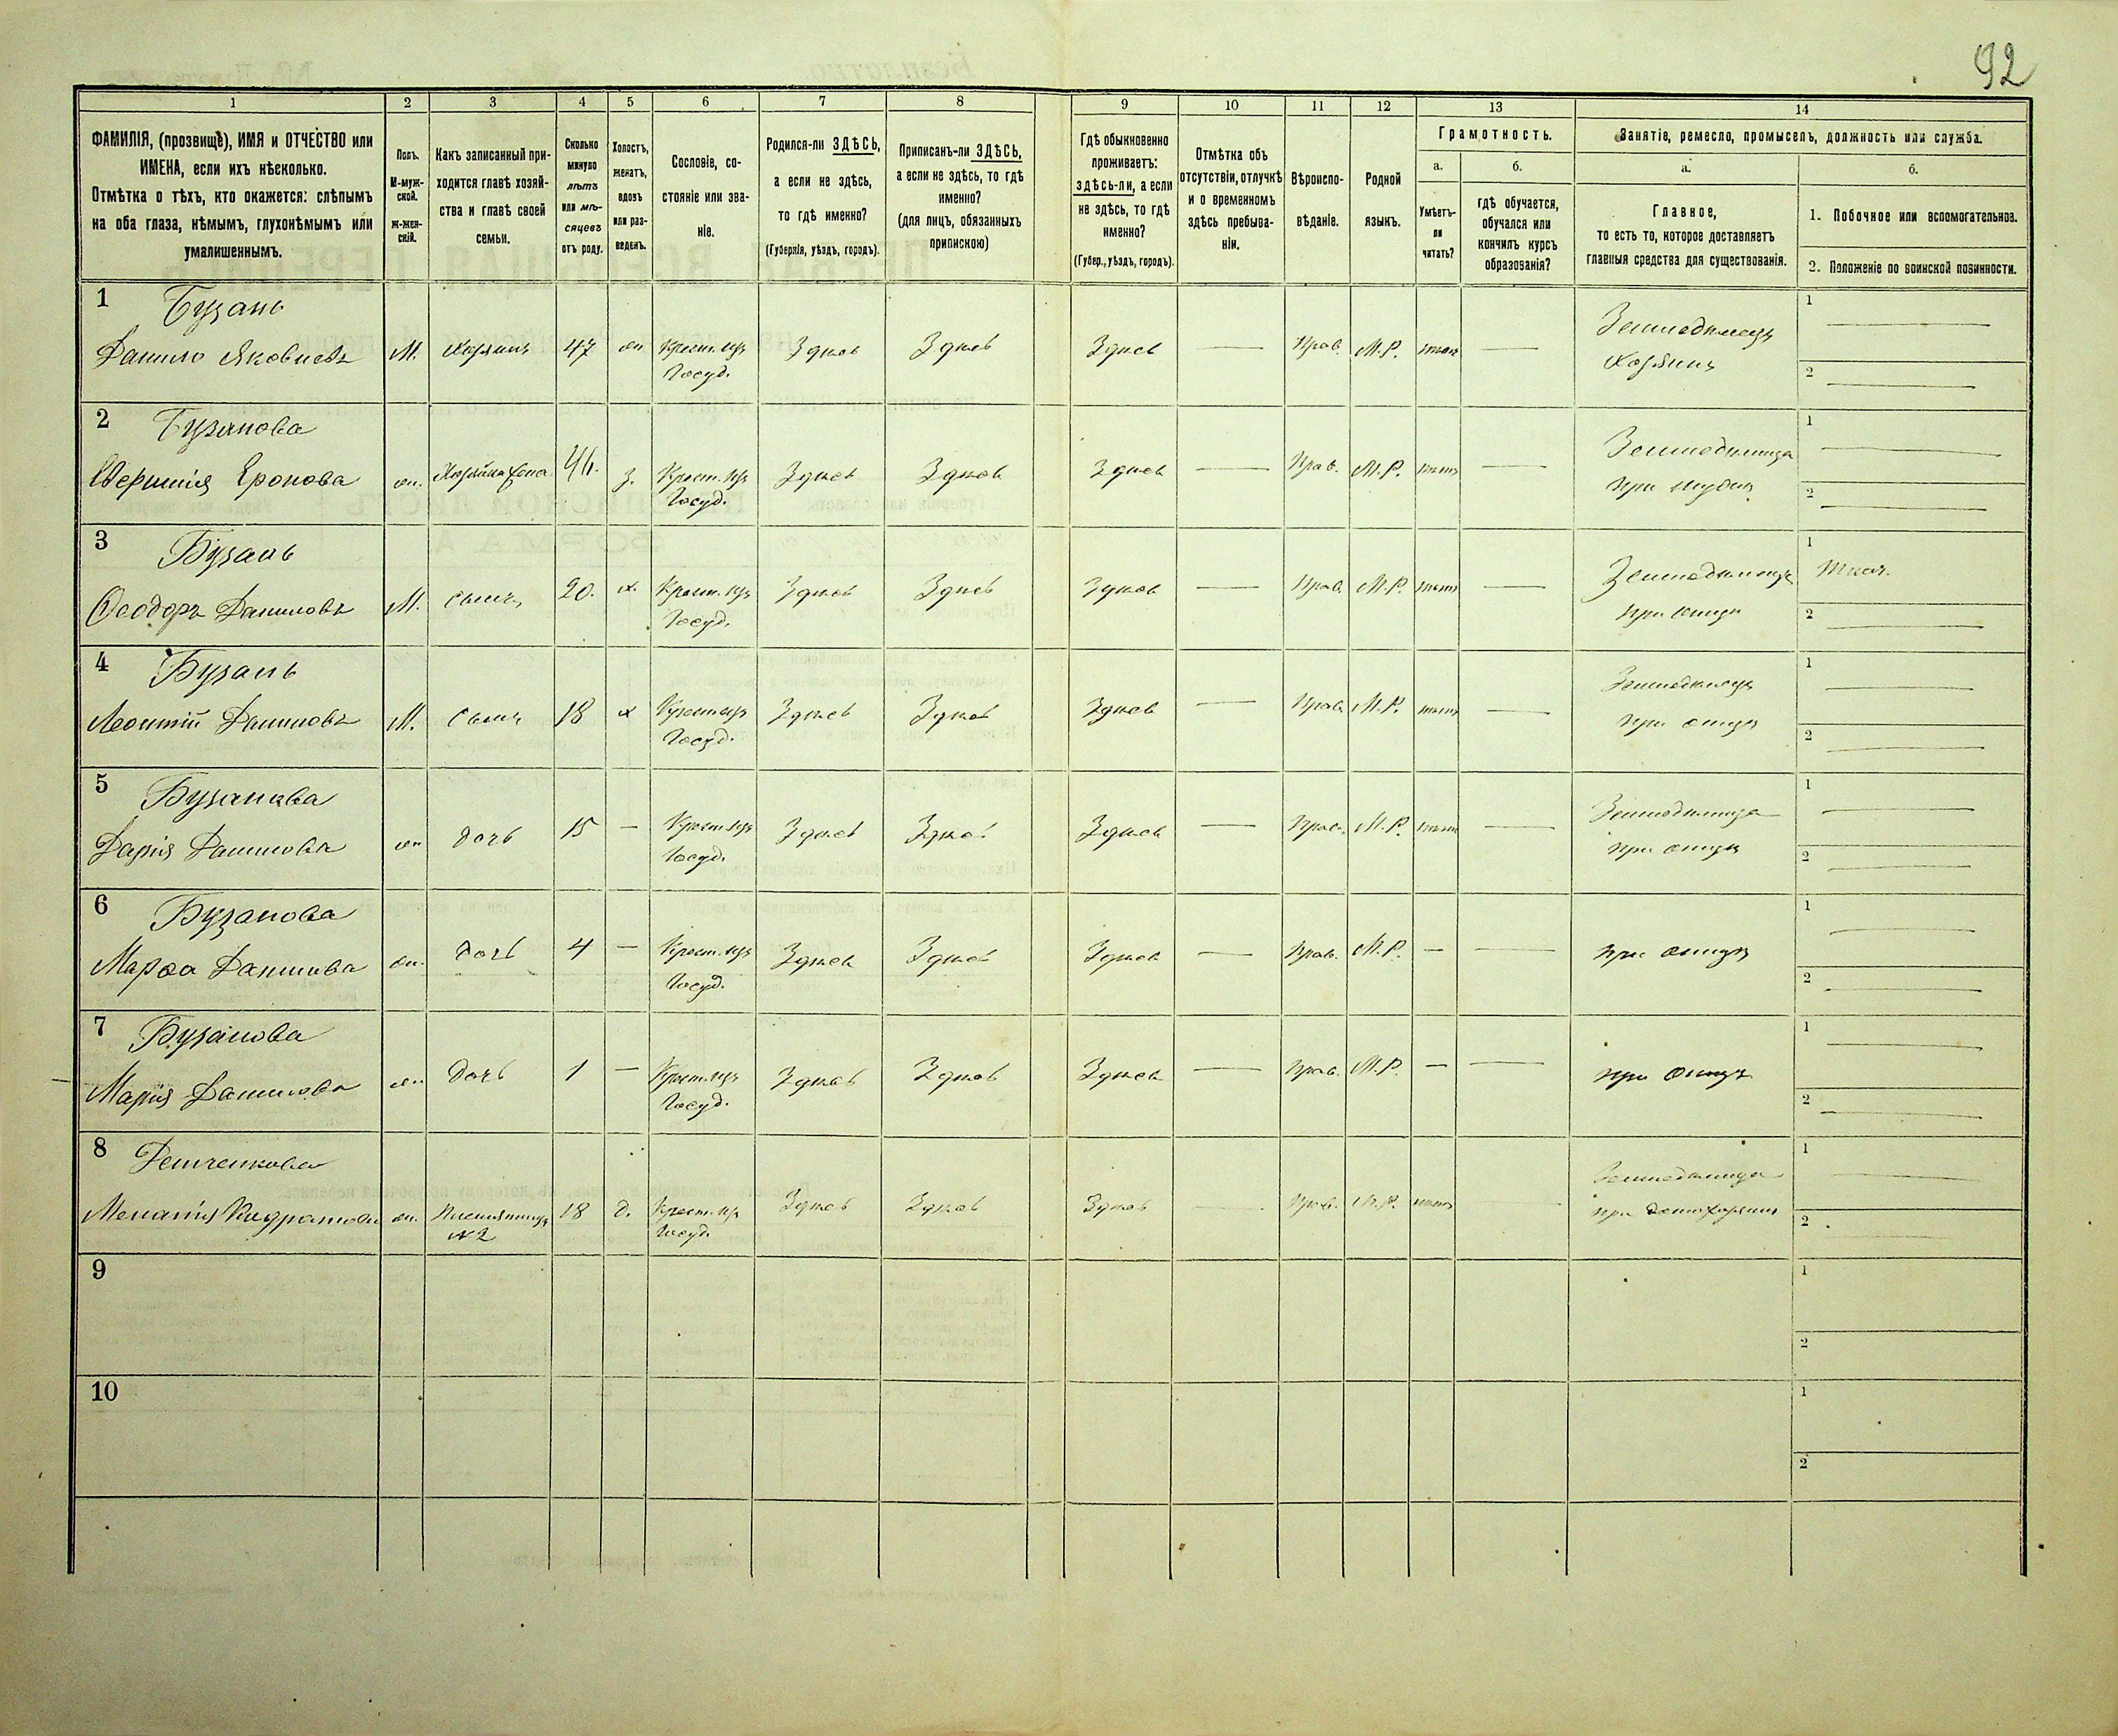 92
1 2 3 4 5 6 7 8 9 10 11 12 13 14
ФАМИЛІЯ, (прозвище), ИМЯ и ОТЧЕСТВО или
ИМЕНА, если ихъ нѣсколько.
Отмѣтка о тѣхъ, кто окажется: слѣпымъ
на оба глаза, нѣмымъ, глухонѣмымъ или
умалишеннымъ.
Полъ.
М-муж-
ской.
Ж-жен-
скій.
Какъ записанный при-
ходится главѣ хозяй-
ства и главѣ своей
семьи.
Сколько
минуло
лѣтъ
или мѣ-
сяцевъ
отъ роду.
Холостъ,
женатъ,
вдовъ
или раз-
веденъ.
Сословіе, со-
стояніе или зва-
ніе.
Родился-ли ЗДѢСЬ,
а если не здѣсь,
то гдѣ именно?
(Губернія, уѣздъ, городъ).
Приписанъ-ли ЗДѢСЬ,
а если не здѣсь, то гдѣ
именно?
(для лицъ, обязанныхъ
припискою)
Гдѣ обыкновенно
проживаетъ:
здѣсь-ли, а если
не здѣсь, то гдѣ
именно?
(Губер., уѣздъ, городъ).
Отмѣтка объ
отсутствіи, отлучкѣ
и о временномъ
здѣсь пребыва-
ніи.
Вѣроиспо-
вѣданіе.
Родной
языкъ.
Грамотность.
а.
Умѣетъ-
ли
читать?
б.
гдѣ обучается,
обучался или
кончилъ курсъ
образованія?
Занятіе, ремесло, промыселъ, должность или служба.
а.
Главное,
то есть то, которое доставляетъ
главныя средства для существованія.
б.
1. Побочное или вспомогательное.
2. Положеніе по воинской повинности.
1 Бузань
Данило Яковлевъ М. Хозяинъ 47 жн Крест. изъ Госуд. Здѣсь Здѣсь Здѣсь — Прав. М.Р. нѣтъ — Земледѣлецъ Хозяинъ 1 — 2 —
2 Бузанова
Еронова жн. 44. з. Крест. изъ Госуд. Здѣсь Здѣсь Здѣсь — Прав. М.Р. нѣтъ — Земледѣлица при мужѣ 1 — 2 —
3 Бузань
Ѳеодоръ Даниловъ М. сынъ 20. х. Крест. изъ Госуд. Здѣсь Здѣсь Здѣсь — Прав. М.Р. нѣтъ — Земледѣлецъ при отцѣ 1 Ткач. 2 —
4 Бузань
Леонтій Даниловъ М. сынъ 18 х Крест. изъ Госуд. Здѣсь Здѣсь Здѣсь — Прав. М.Р. нѣтъ — Земледѣлецъ при отцѣ 1 — 2 —
5 Бузанова
Дарія Данилова жн дочь 15 — Крест. изъ Госуд. Здѣсь Здѣсь Здѣсь — Прав. М.Р. нѣтъ — Земледѣлица при отцѣ 1 — 2 —
6 Бузанова
Марѳа Данилова жн. дочь 4 — Крест. изъ Госуд. Здѣсь Здѣсь Здѣсь — Прав. М.Р. — — при отцѣ 1 — 2 —
7 Бузанова
Марія Данилова жн. дочь 1 — Крест. изъ Госуд. Здѣсь Здѣсь Здѣсь — Прав. М.Р. — — при отцѣ 1 — 2 —
8 Демченкова
Меланія жн. №2 18 д. Крест. изъ Госуд. Здѣсь Здѣсь Здѣсь — Прав. М.Р. нѣтъ — Земледѣлица при 1 — 2 —
9 1 2
10 1 2